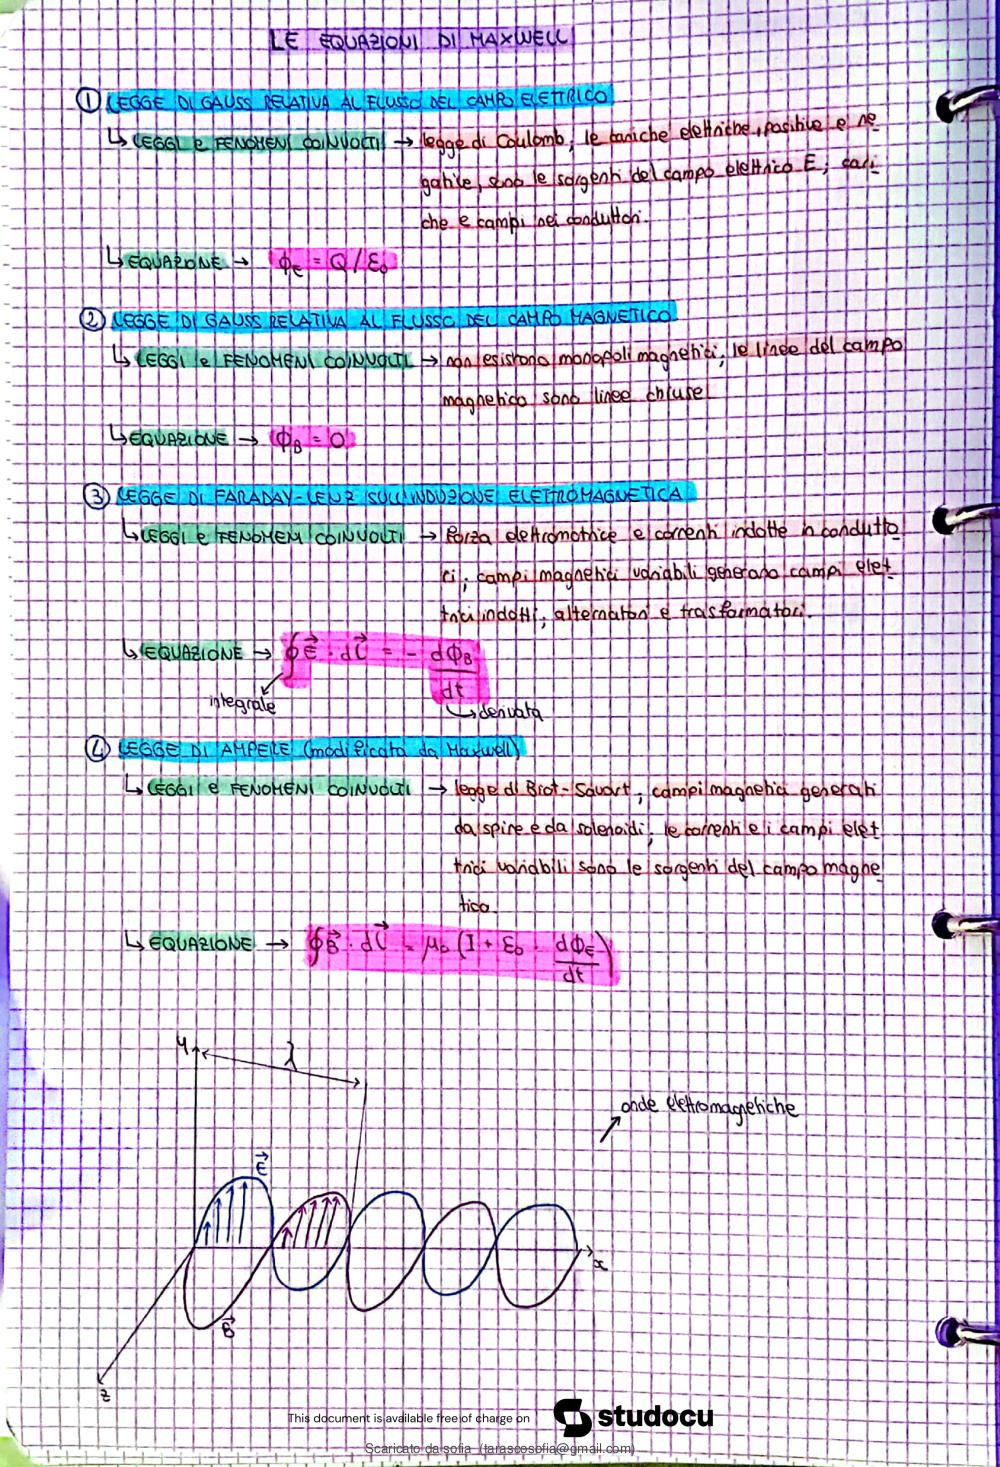 LE EQUAZIONI DI MAXWELL
① LEGGE DI GAUSS RELATIVA AL FLUSSO DEL CAMPO ELETTRICO
↳ LEGGI e FENOMENI COINVOLTI → legge di Coulomb; le cariche elettriche, positive e ne
gative, sono le sorgenti del campo elettrico E; cari
che e campi nei conduttori.
↳ EQUAZIONE → ϕE = Q/ε0
② LEGGE DI GAUSS RELATIVA AL FLUSSO DEL CAMPO MAGNETICO
↳ LEGGI e FENOMENI COINVOLTI → non esistono monopoli magnetici; le linee del campo
magnetico sono linee chiuse
↳ EQUAZIONE → ϕB = 0
③ LEGGE DI FARADAY-LENZ SULL'INDUZIONE ELETTROMAGNETICA
↳ LEGGI e FENOMENI COINVOLTI → forza elettromotrice e correnti indotte in condutto
ri; campi magnetici variabili generano campi elet
trici indotti; alternatori e trasformatori.
↳ EQUAZIONE → ∮E⃗ · dl⃗ = - dϕB/dt
integrale
↳ derivata
④ LEGGE DI AMPERE (modificata da Maxwell)
↳ LEGGI e FENOMENI COINVOLTI → legge di Biot-Savart; campi magnetici generati
da spire e da solenoidi; le correnti e i campi elet
trici variabili sono le sorgenti del campo magne
tico.
↳ EQUAZIONE → ∮B⃗ · dl⃗ = μ0 (I + ε0 · dϕE/dt)
y
λ
onde elettromagnetiche
E⃗
x
B⃗
z
This document is available free of charge on studocu
Scaricato da sofia (tarascosofia@gmail.com)